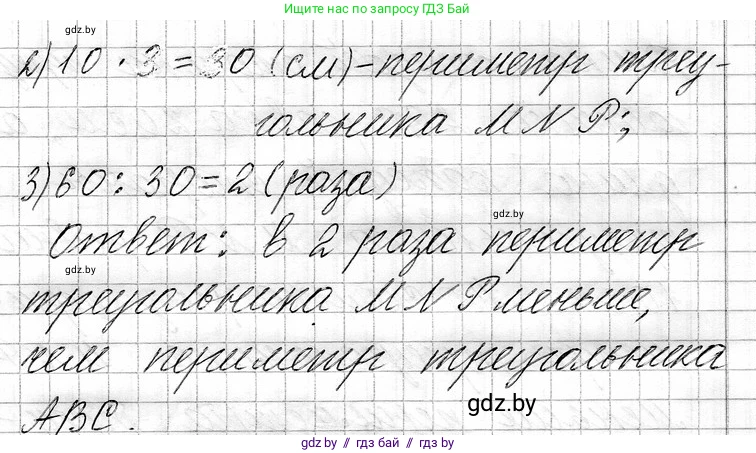 Ищите нас по запросу ГДЗ Бай
gdz.by
2) 10 · 3 = 30 (см) – периметр треу-
гольника MNP;
3) 60 : 30 = 2 (раза)
gdz.by
Ответ: в 2 раза периметр
gdz.by
треугольника MNP меньше,
чем периметр треугольника
gdz.by
ABC.
gdz.by // гдз бай // гдз by